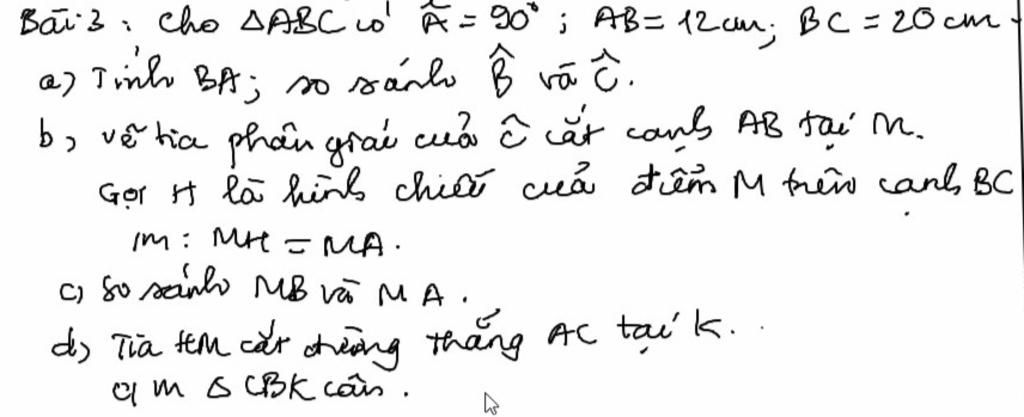 Bài 3 : Cho ΔABC có Â = 90° ; AB = 12 cm; BC = 20 cm.
a) Tính BA; so sánh B̂ và Ĉ.
b, vẽ tia phân giác của Ĉ cắt cạnh AB tại M.
Gọi H là hình chiếu của điểm M trên cạnh BC
Cm : MH = MA.
c) So sánh MB và MA.
d) Tia HM cắt đường thẳng AC tại K.
Cm Δ CBK cân.